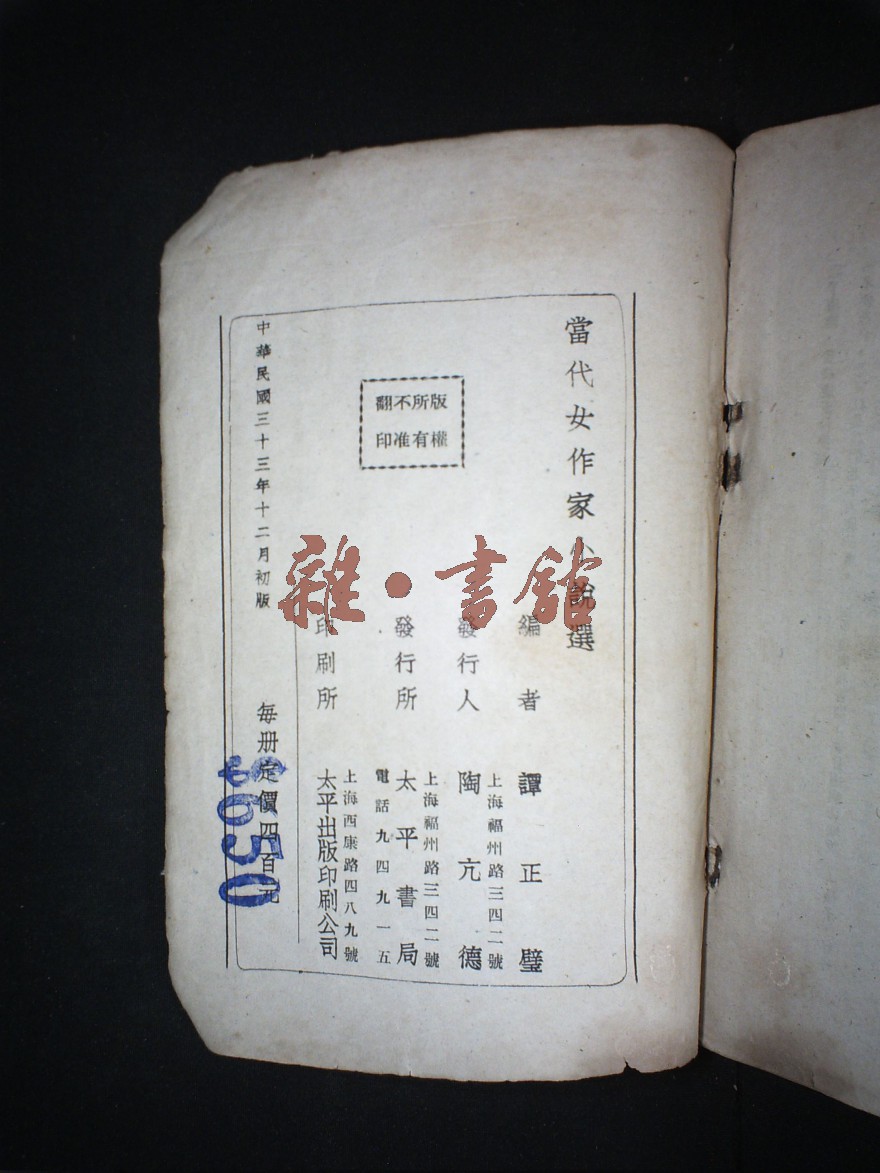 當代女作家小說選
編者 譚正璧
上海福州路三四二號
發行人 陶亢德
上海福州路三四二號
發行所 太平書局
電話九四九一五
上海西康路四八九號
印刷所 太平出版印刷公司
版權所有
不准翻印
中華民國三十三年十二月初版 每册定價四百元
$650
雜·書館